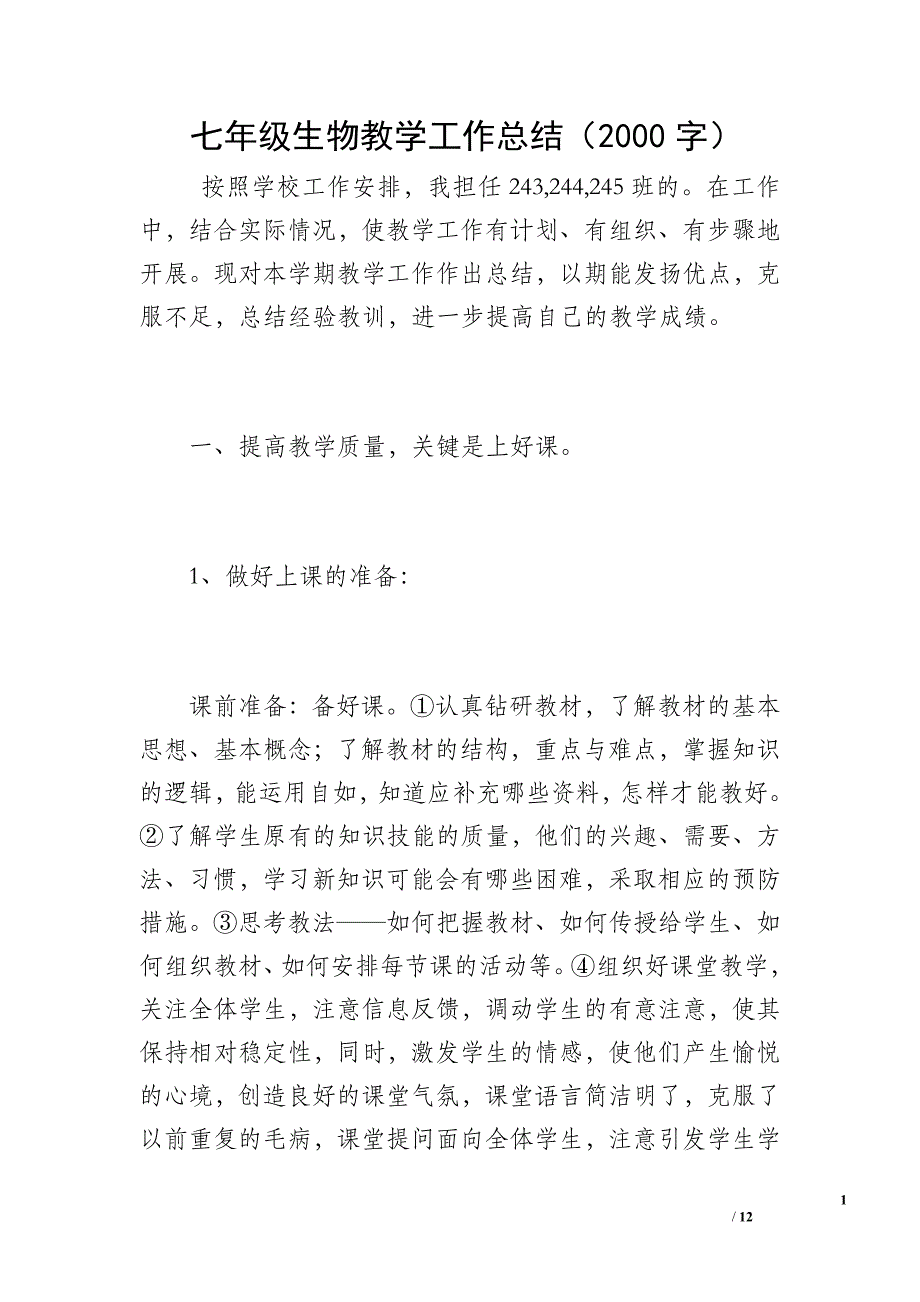 七年级生物教学工作总结（2000 字）
按照学校工作安排，我担任 243,244,245 班的。在工作
中，结合实际情况，使教学工作有计划、有组织、有步骤地
开展。现对本学期教学工作作出总结，以期能发扬优点，克
服不足，总结经验教训，进一步提高自己的教学成绩。
一、提高教学质量，关键是上好课。
1、做好上课的准备：
课前准备：备好课。①认真钻研教材，了解教材的基本
思想、基本概念；了解教材的结构，重点与难点，掌握知识
的逻辑，能运用自如，知道应补充哪些资料，怎样才能教好。
②了解学生原有的知识技能的质量，他们的兴趣、需要、方
法、习惯，学习新知识可能会有哪些困难，采取相应的预防
措施。③思考教法——如何把握教材、如何传授给学生、如
何组织教材、如何安排每节课的活动等。④组织好课堂教学，
关注全体学生，注意信息反馈，调动学生的有意注意，使其
保持相对稳定性，同时，激发学生的情感，使他们产生愉悦
的心境，创造良好的课堂气氛，课堂语言简洁明了，克服了
以前重复的毛病，课堂提问面向全体学生，注意引发学生学
1
/ 12